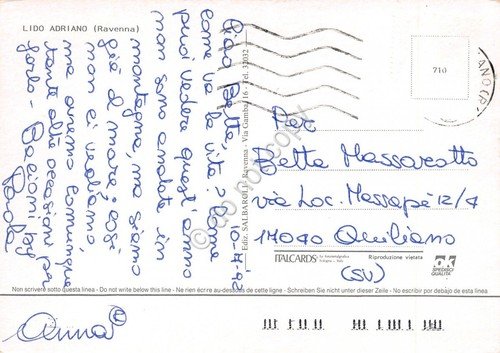 LIDO ADRIANO (Ravenna)
10-7-92
Ciao Bette,
come va la vita? Come
puoi vedere quest'anno
non sono andata in
montagna, ma siamo
già al mare: così
non ci vediamo,
ma avremo comunque
tante altre occasioni per
farlo - Bacioni by
Paola
Ediz. SALBAROLI - Ravenna - Via Gamba, 16 - Tel. 32032
710
Per
Bette Massarotto
via Loc. Messapé 12/4
17040 Quiliano
(SV)
ITALCARDS
Riproduzione vietata
SPEDISCI
QUALITÀ
Non scrivere sotto questa linea - Do not write below this line - Ne rien écrire au-dessous de cette ligne - Schreiben Sie nicht unter dieser Zeile - No escribir por debajo de esta linea
Anna
do not copy